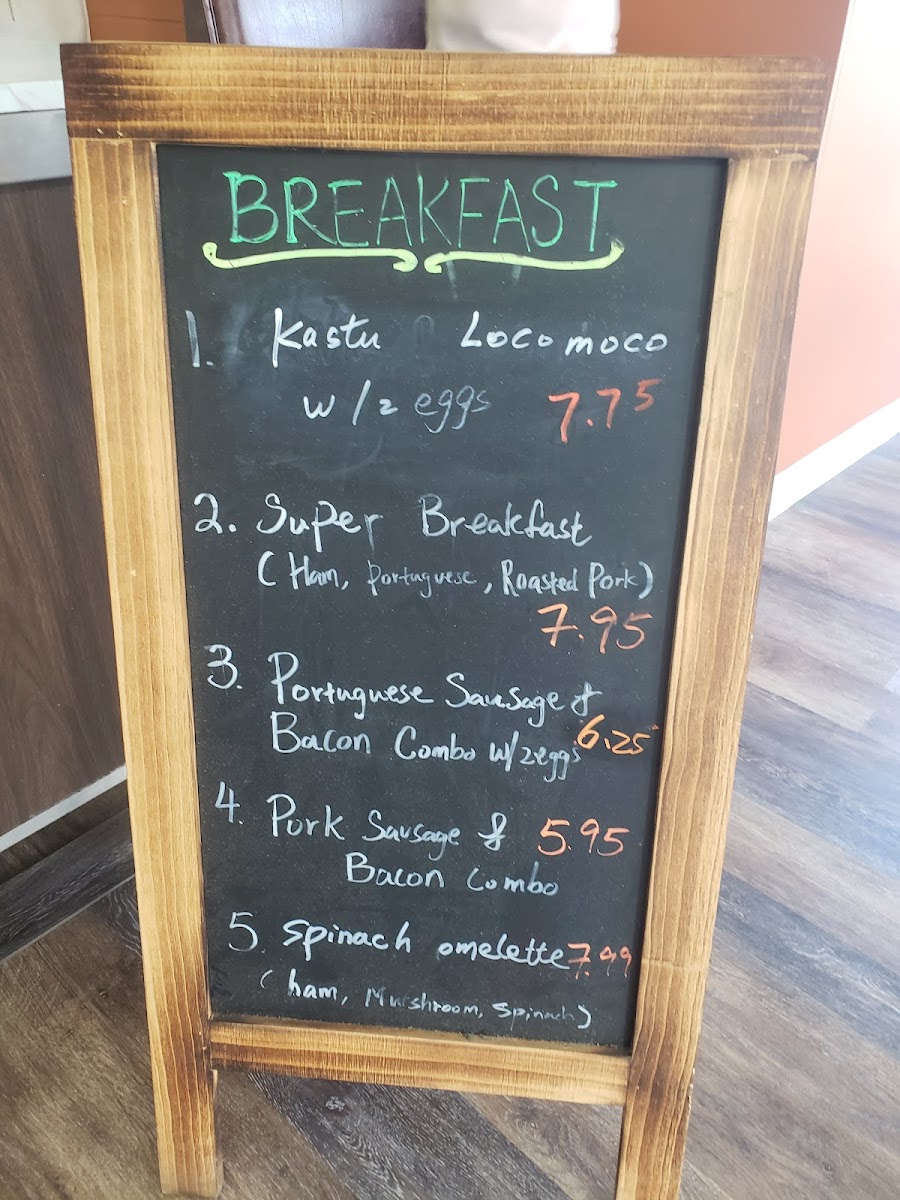 BREAKFAST
1. Kastu Locomoco
w/2 eggs 7.75
2. Super Breakfast
(Ham, Portuguese, Roasted Pork)
7.95
3. Portuguese Sausage &
Bacon Combo w/2eggs 6.25
4. Pork Sausage & 5.95
Bacon Combo
5. Spinach omelette 7.99
(ham, Murshroom, Spinach)